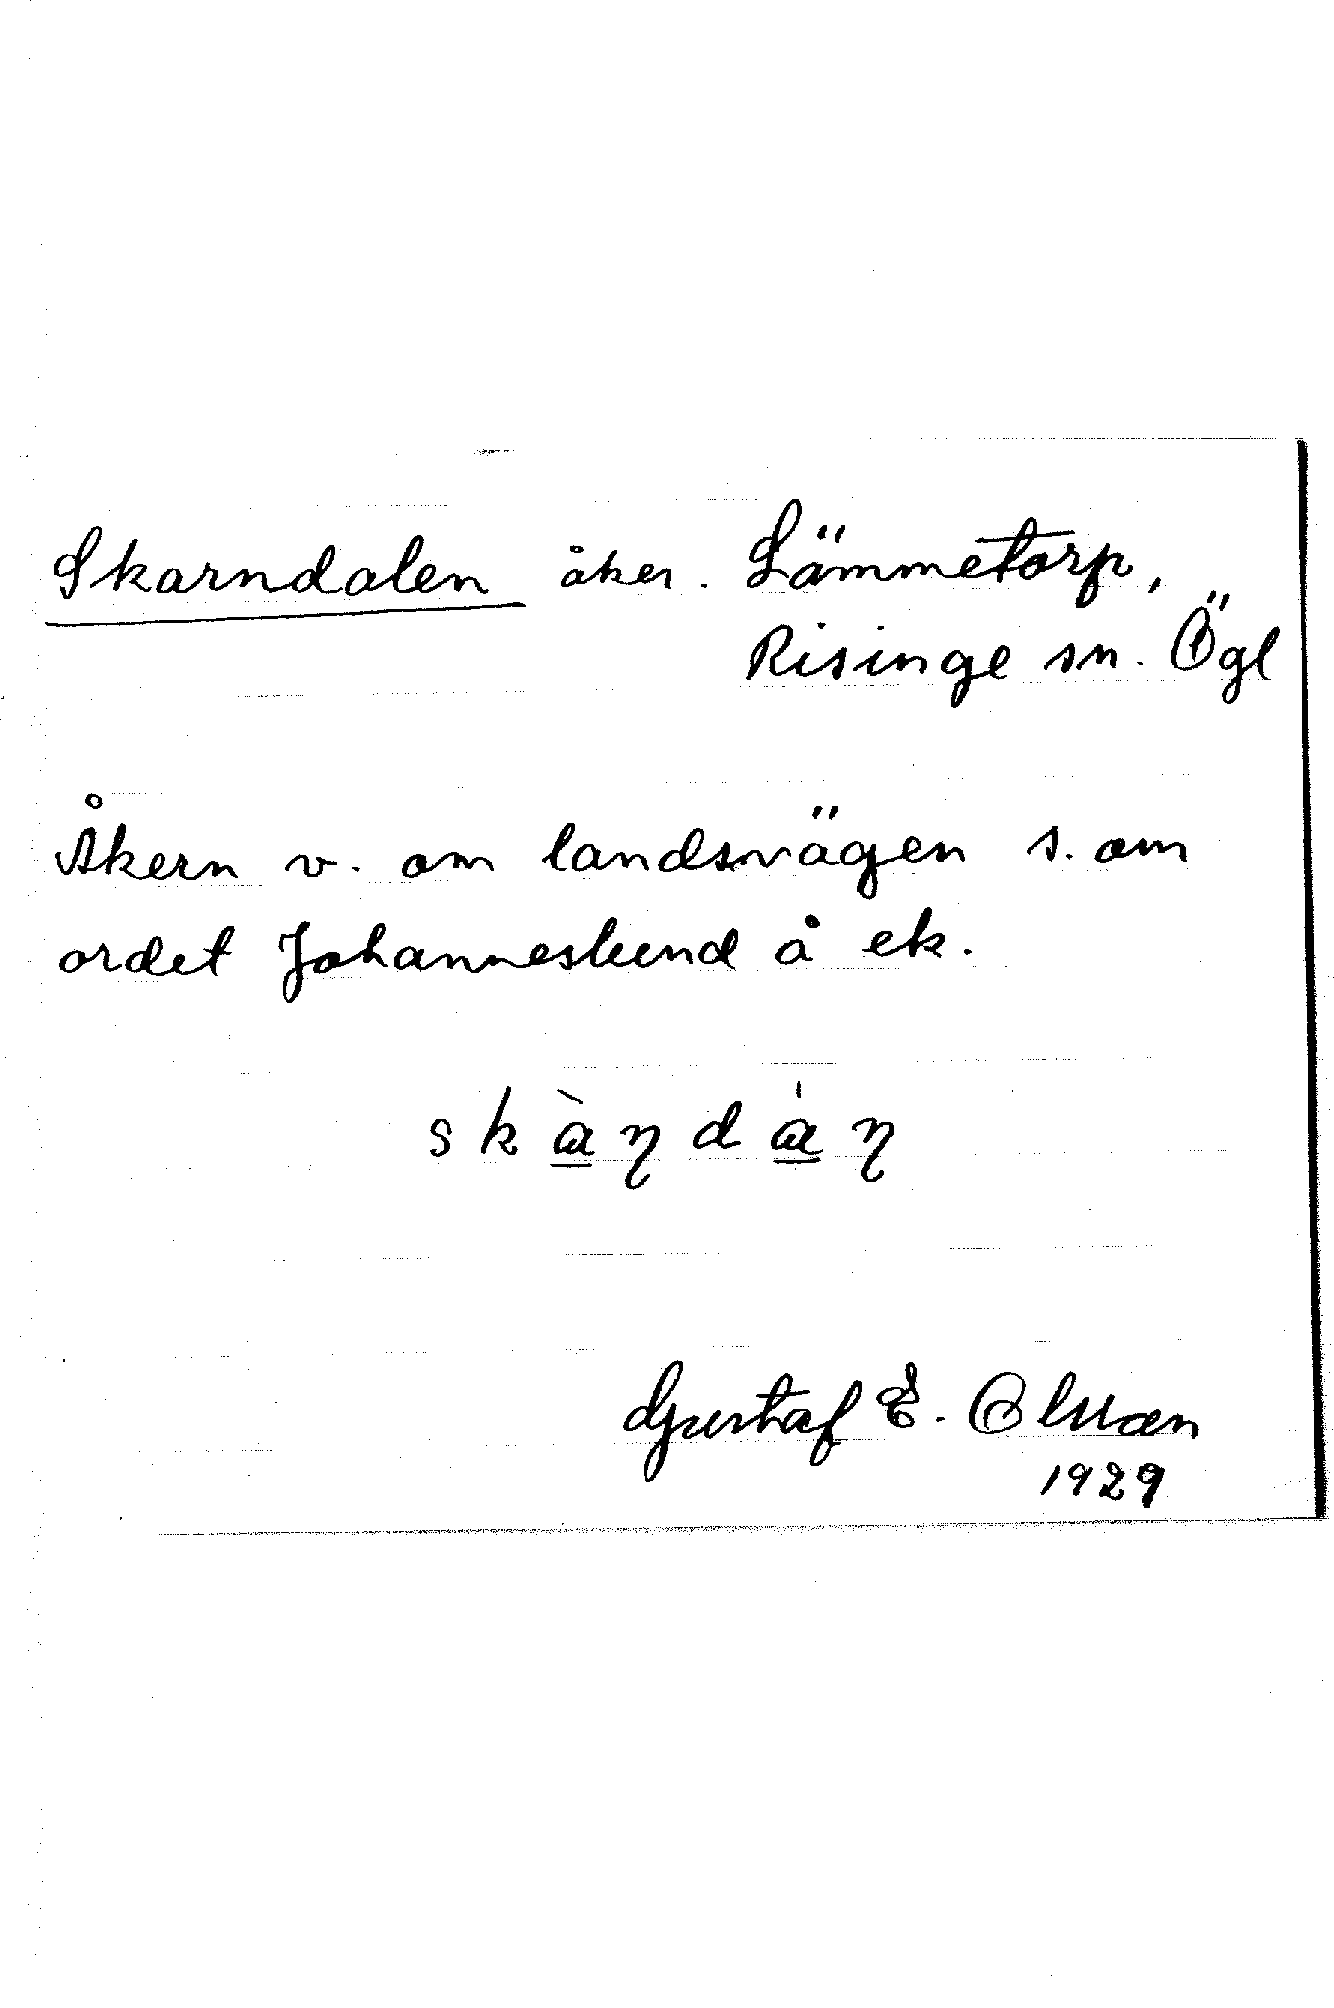 Skarndalen åker. Lämmetorp,
Risinge sn. Ögl
Åkern v. om landsvägen s. om
ordet Johanneslund å ek.
skàꞑdáꞑ
Gustaf E. Olsson
1929